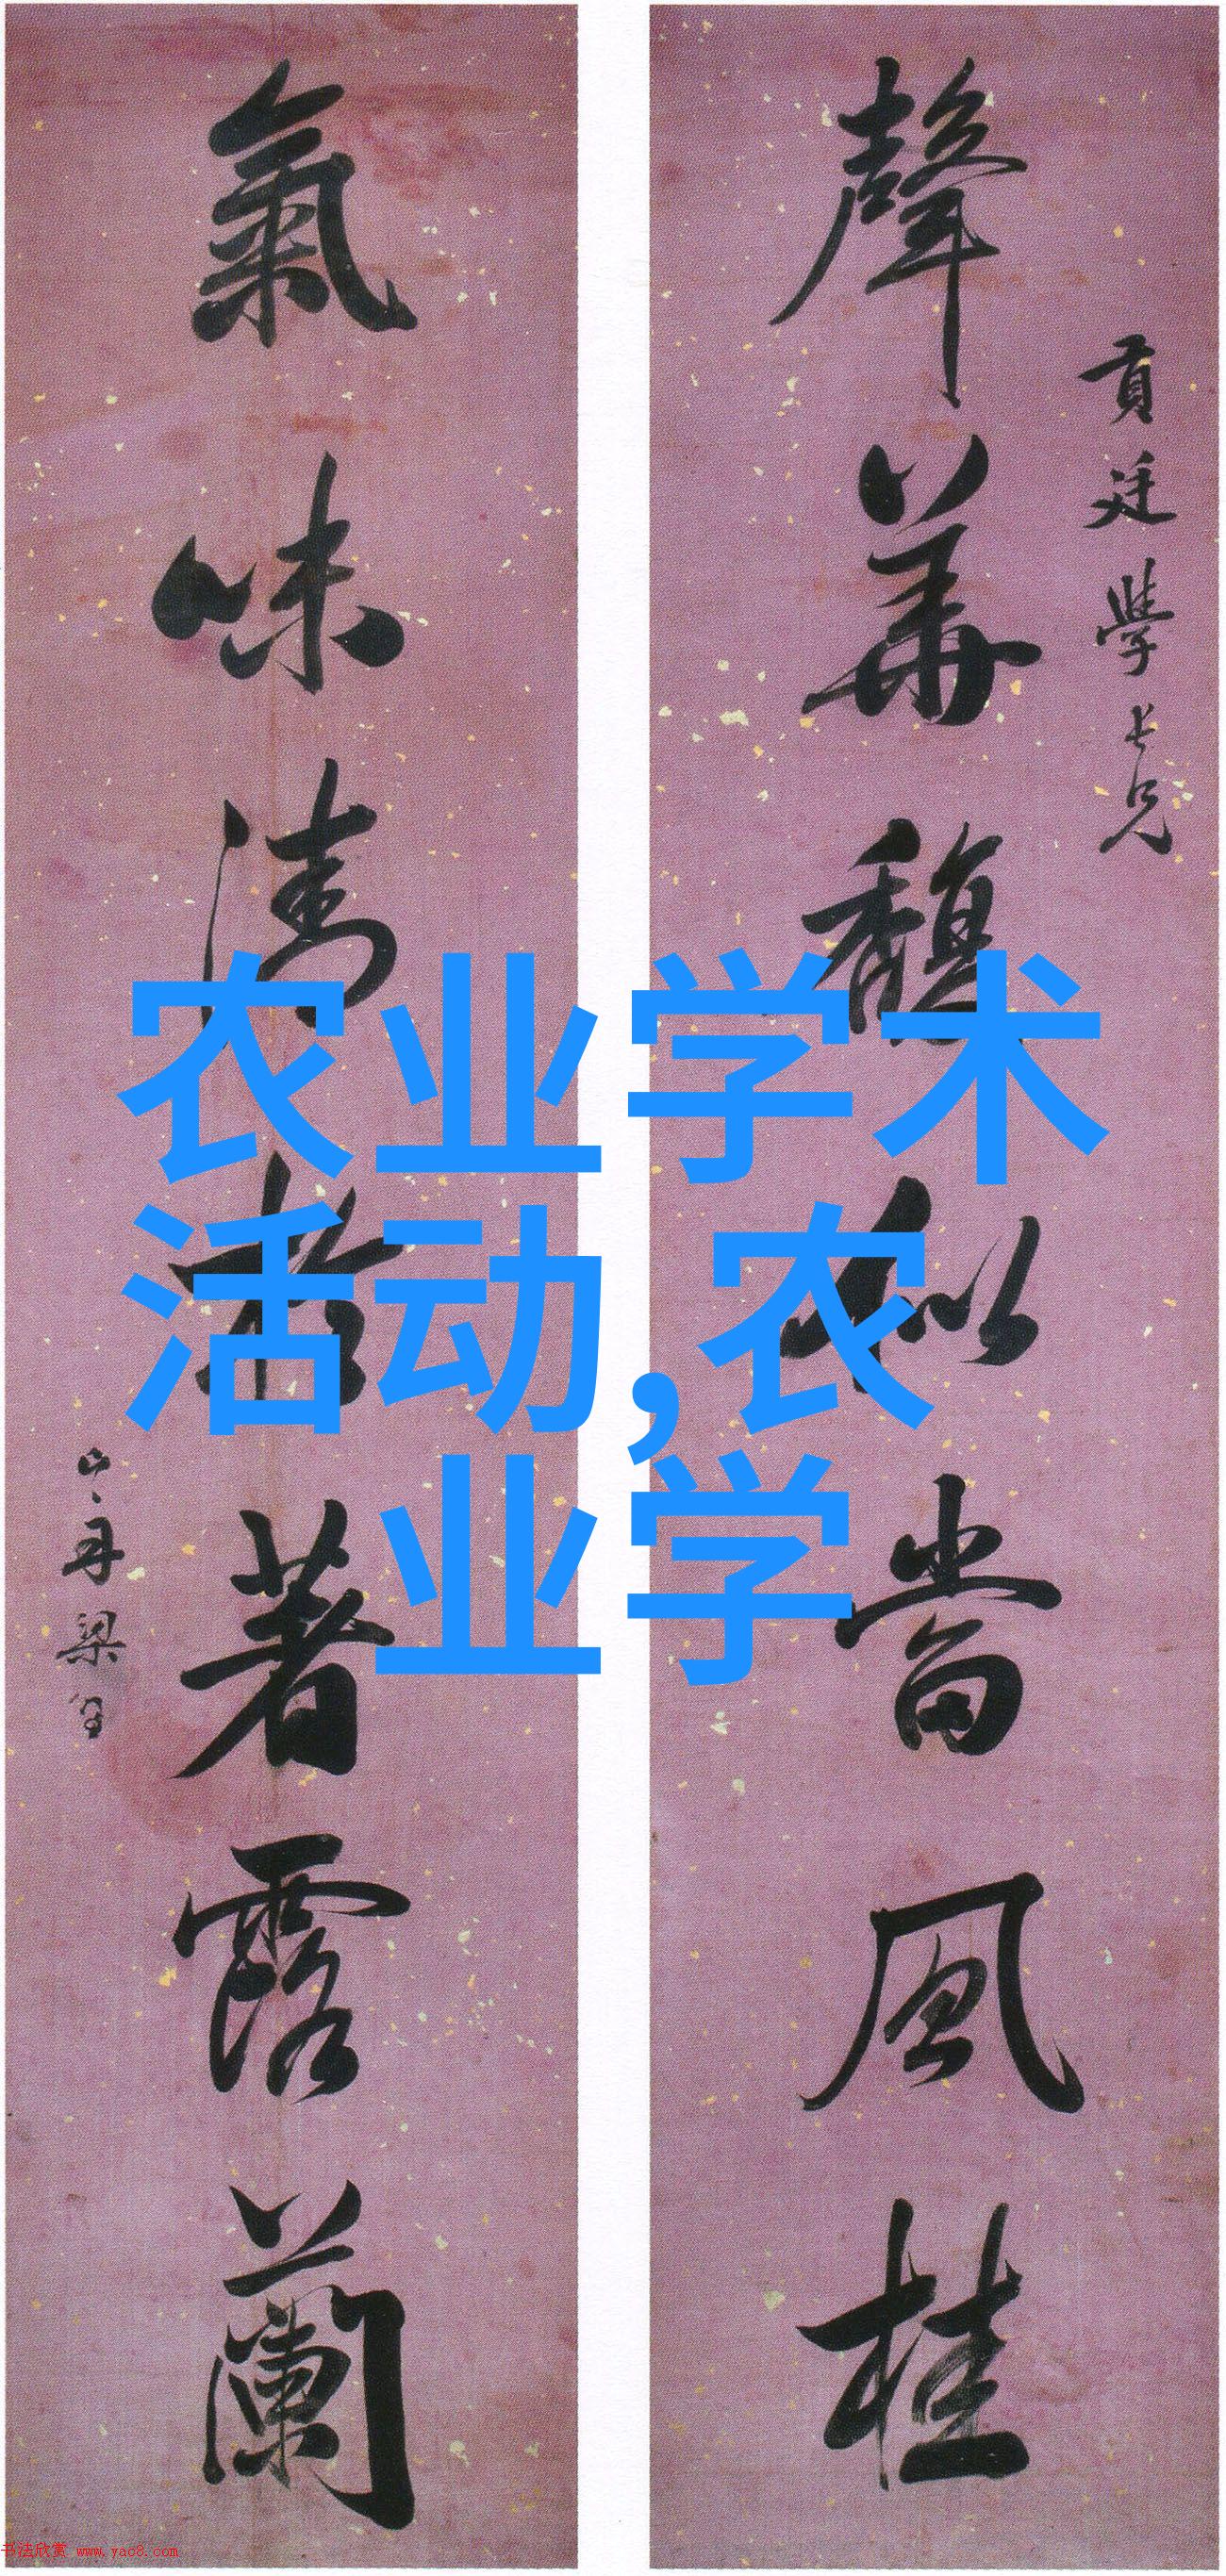 貢廷學長兄
聲華馥似當風桂
氣味清於著露蘭
山舟梁
农业学术
活动,农
业学
书法欣赏 www.yac8.com